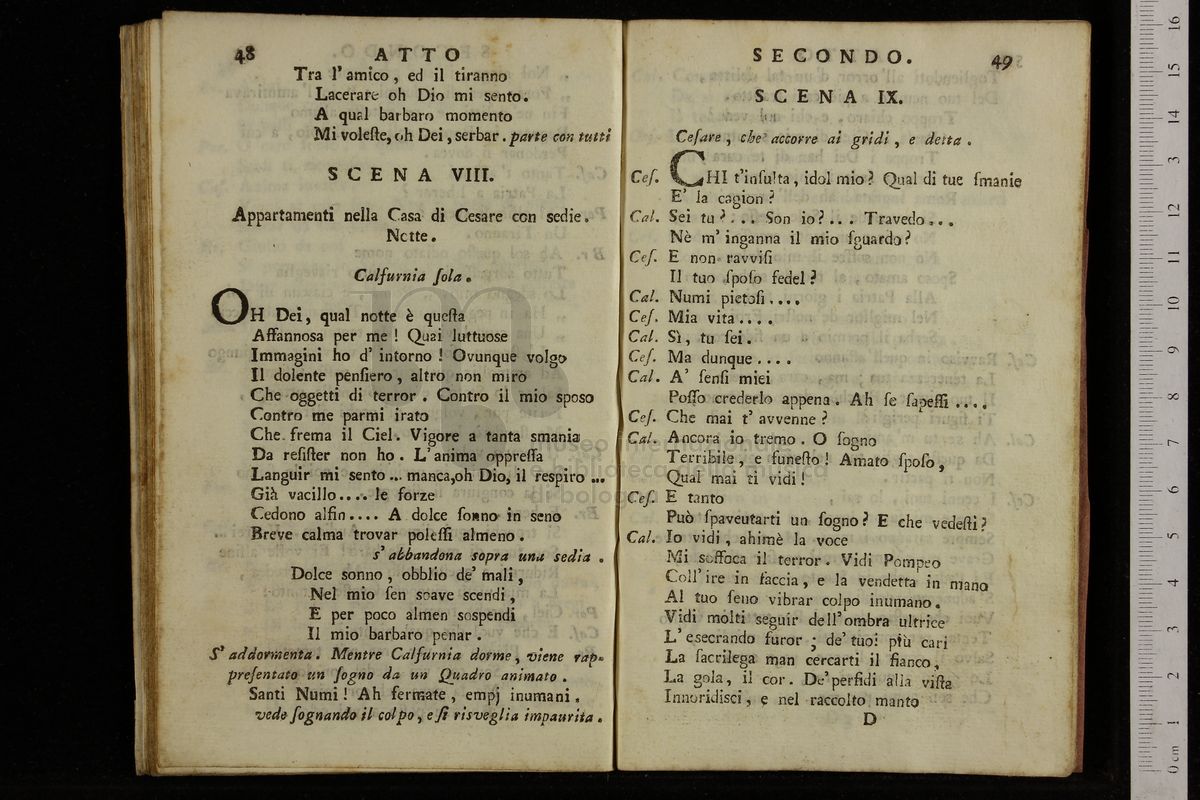 48 ATTO
Tra l'amico, ed il tiranno
Lacerare oh Dio mi sento.
A qual barbaro momento
Mi voleſte, oh Dei, serbar. parte con tutti
SCENA VIII.
Appartamenti nella Casa di Cesare con sedie.
Notte.
Calfurnia ſola.
OH Dei, qual notte è queſta
Affannosa per me! Quai luttuose
Immagini ho d'intorno! Ovunque volgo
Il dolente penſiero, altro non miro
Che oggetti di terror. Contro il mio sposo
Contro me parmi irato
Che frema il Ciel. Vigore a tanta smania
Da reſiſter non ho. L'anima oppreſſa
Languir mi sento... manca, oh Dio, il respiro...
Già vacillo.... le forze
Cedono alfin.... A dolce sonno in seno
Breve calma trovar poteſſi almeno.
s'abbandona sopra una sedia.
Dolce sonno, obblio de' mali,
Nel mio ſen soave scendi,
E per poco almen sospendi
Il mio barbaro penar.
S'addormenta. Mentre Calfurnia dorme, viene rap-
preſentato un ſogno da un Quadro animato.
Santi Numi! Ah fermate, empj inumani,
vede ſognando il colpo, e ſi risveglia impaurita.
SECONDO. 49
SCENA IX.
Ceſare, che accorre ai gridi, e detta.
Ceſ. CHI t'inſulta, idol mio? Qual di tue ſmanie
E' la cagion?
Cal. Sei tu?... Son io?... Travedo...
Nè m'inganna il mio ſguardo?
Ceſ. E non ravviſi
Il tuo ſpoſo fedel?
Cal. Numi pietoſi....
Ceſ. Mia vita....
Cal. Sì, tu ſei.
Ceſ. Ma dunque....
Cal. A' ſenſi miei
Poſſo crederlo appena. Ah ſe ſapeſſi....
Ceſ. Che mai t'avvenne?
Cal. Ancora io tremo. O ſogno
Terribile, e funeſto! Amato ſpoſo,
Qual mai ti vidi!
Ceſ. E tanto
Può ſpaveutarti un ſogno? E che vedeſti?
Cal. Io vidi, ahimè la voce
Mi soffoca il terror. Vidi Pompeo
Coll'ire in faccia, e la vendetta in mano
Al tuo ſeno vibrar colpo inumano.
Vidi molti seguir dell'ombra ultrice
L'esecrando furor; de' tuoi più cari
La ſacrilega man cercarti il fianco,
La gola, il cor. De' perfidi alla viſta
Innoridisci, e nel raccolto manto
D
museo internazionale
e biblioteca della musica
di bologna
0 cm 1 2 3 4 5 6 7 8 9 10 11 12 13 14 15 16